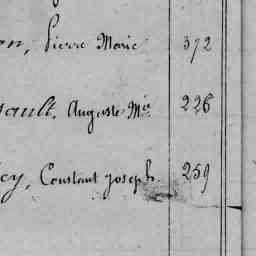 on, Pierre Marie 372
sault, Auguste Mie 226
cy, Constant Joseph 259